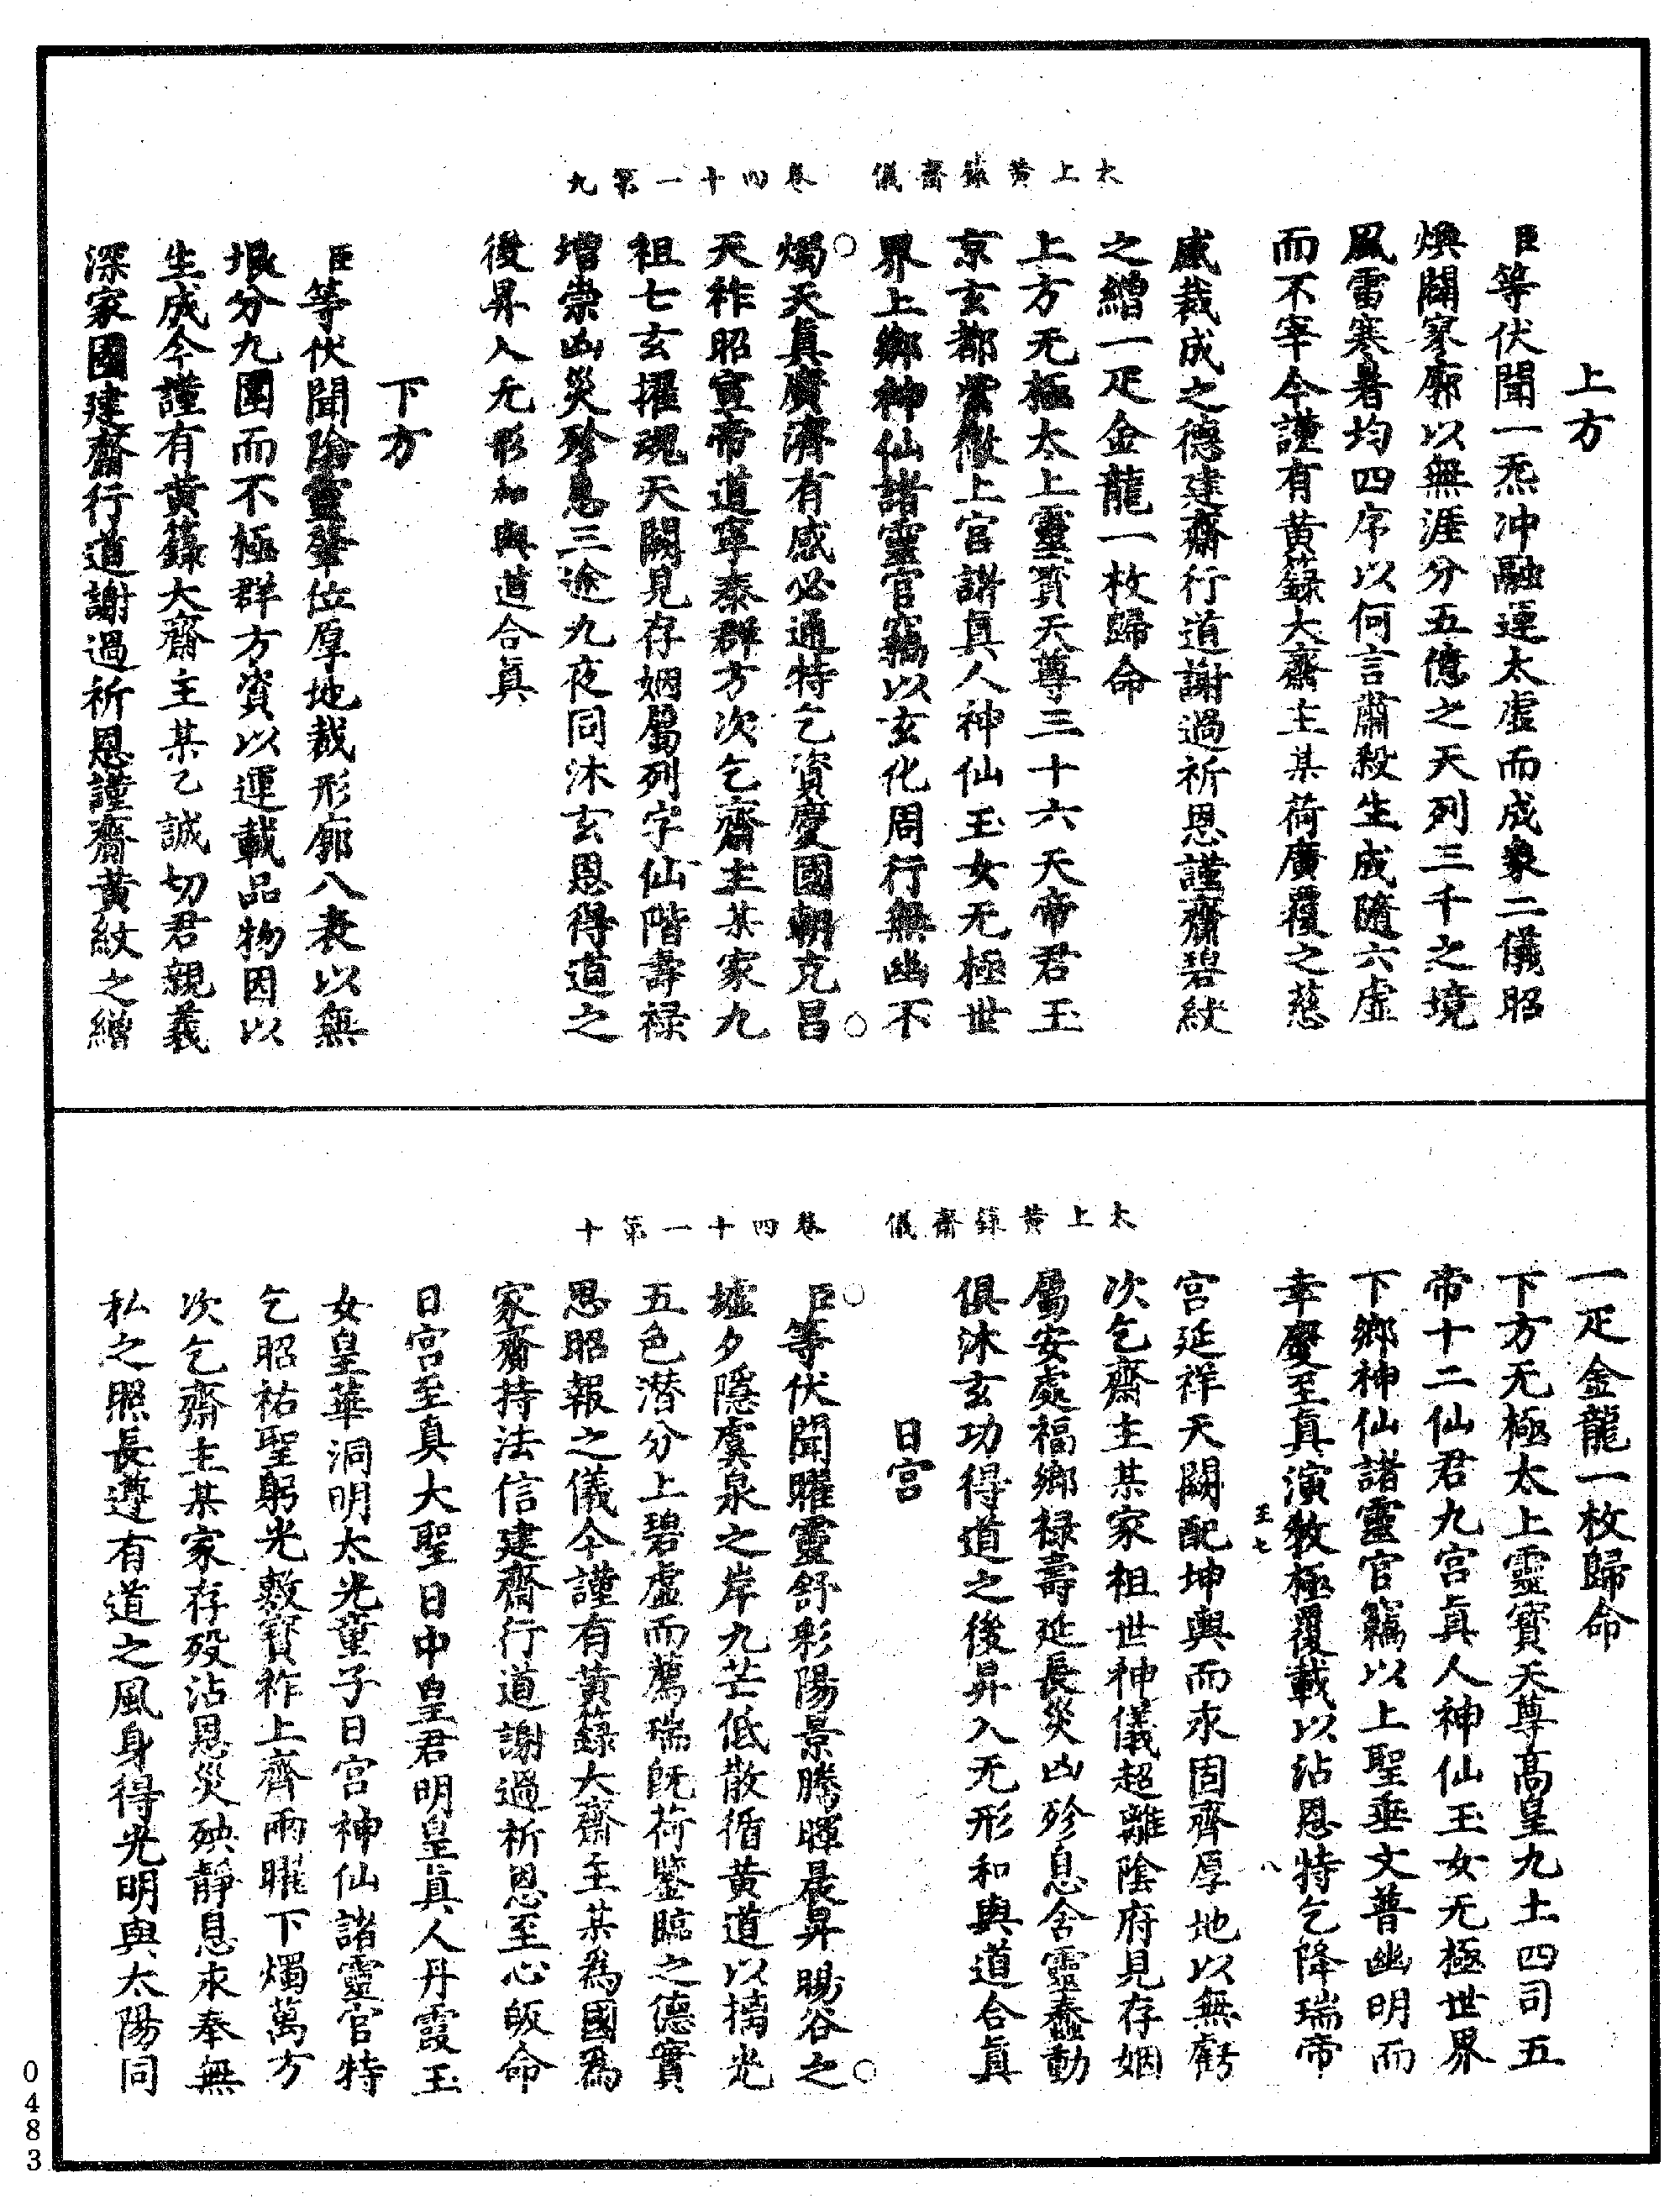 太上黃籙齋儀　卷四十一第九
上方
臣等伏聞一炁沖融運太虛而成象二儀昭
煥闢寥廓以無涯分五億之天列三千之境
風雷寒暑均四序以何言肅殺生成隨六虛
而不宰今謹有黃籙大齋主某荷廣覆之慈
感裁成之德建齋行道謝過祈恩謹齋碧紋
之繒一疋金龍一枚歸命
上方无極太上靈寶天尊三十六天帝君玉
京玄都紫微上宮諸真人神仙玉女无極世
界上鄉神仙諸靈官竊以玄化周行無幽不
燭天真廣濟有感必通特乞資慶國朝克昌
天祚昭宣帝道寧泰群方次乞齋主某家九
祖七玄擢魂天闕見存姻屬列字仙階壽祿
增崇凶災殄息三途九夜同沐玄恩得道之
後昇入无形和與道合真
下方
臣等伏聞陰靈肇位厚地裁形廓八表以無
垠分九圍而不極群方資以運載品物因以
生成今謹有黃籙大齋主某乙誠切君親義
深家國建齋行道謝過祈恩謹齋黃紋之繒
太上黃籙齋儀　卷四十一第十
一疋金龍一枚歸命
下方无極太上靈寶天尊高皇九土四司五
帝十二仙君九宮真人神仙玉女无極世界
下鄉神仙諸靈官竊以上聖垂文普幽明而
幸慶至真演教極覆載以沾恩特乞降瑞帝
王七
八
宮延祥天闕配坤輿而永固齊厚地以無虧
次乞齋主某家祖世神儀超離陰府見存姻
屬安處福鄉祿壽延長災凶殄息含靈蠢動
俱沐玄功得道之後昇入无形和與道合真
日宮
臣等伏聞曜靈舒彩陽景騰暉晨昇暘谷之
墟夕隱虞泉之岸九芒低散循黃道以摛光
五色潛分上碧虛而薦瑞既荷鑒臨之德實
思昭報之儀今謹有黃籙大齋主某為國為
家齋持法信建齋行道謝過祈恩至心皈命
日宮至真大聖日中皇君明皇真人丹霞玉
女皇華洞明太光童子日宮神仙諸靈官特
乞昭祐聖躬光敷寶祚上齊兩曜下燭萬方
次乞齋主某家存歿沾恩災殃靜息永奉無
私之照長遵有道之風身得光明與太陽同
0483